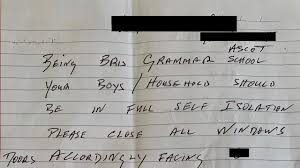 ASCOT
BEING BRIS GRAMMAR SCHOOL
YOUR BOYS / HOUSEHOLD SHOULD
BE IN FULL SELF ISOLATION
PLEASE CLOSE ALL WINDOWS
DOORS ACCORDINGLY FACING